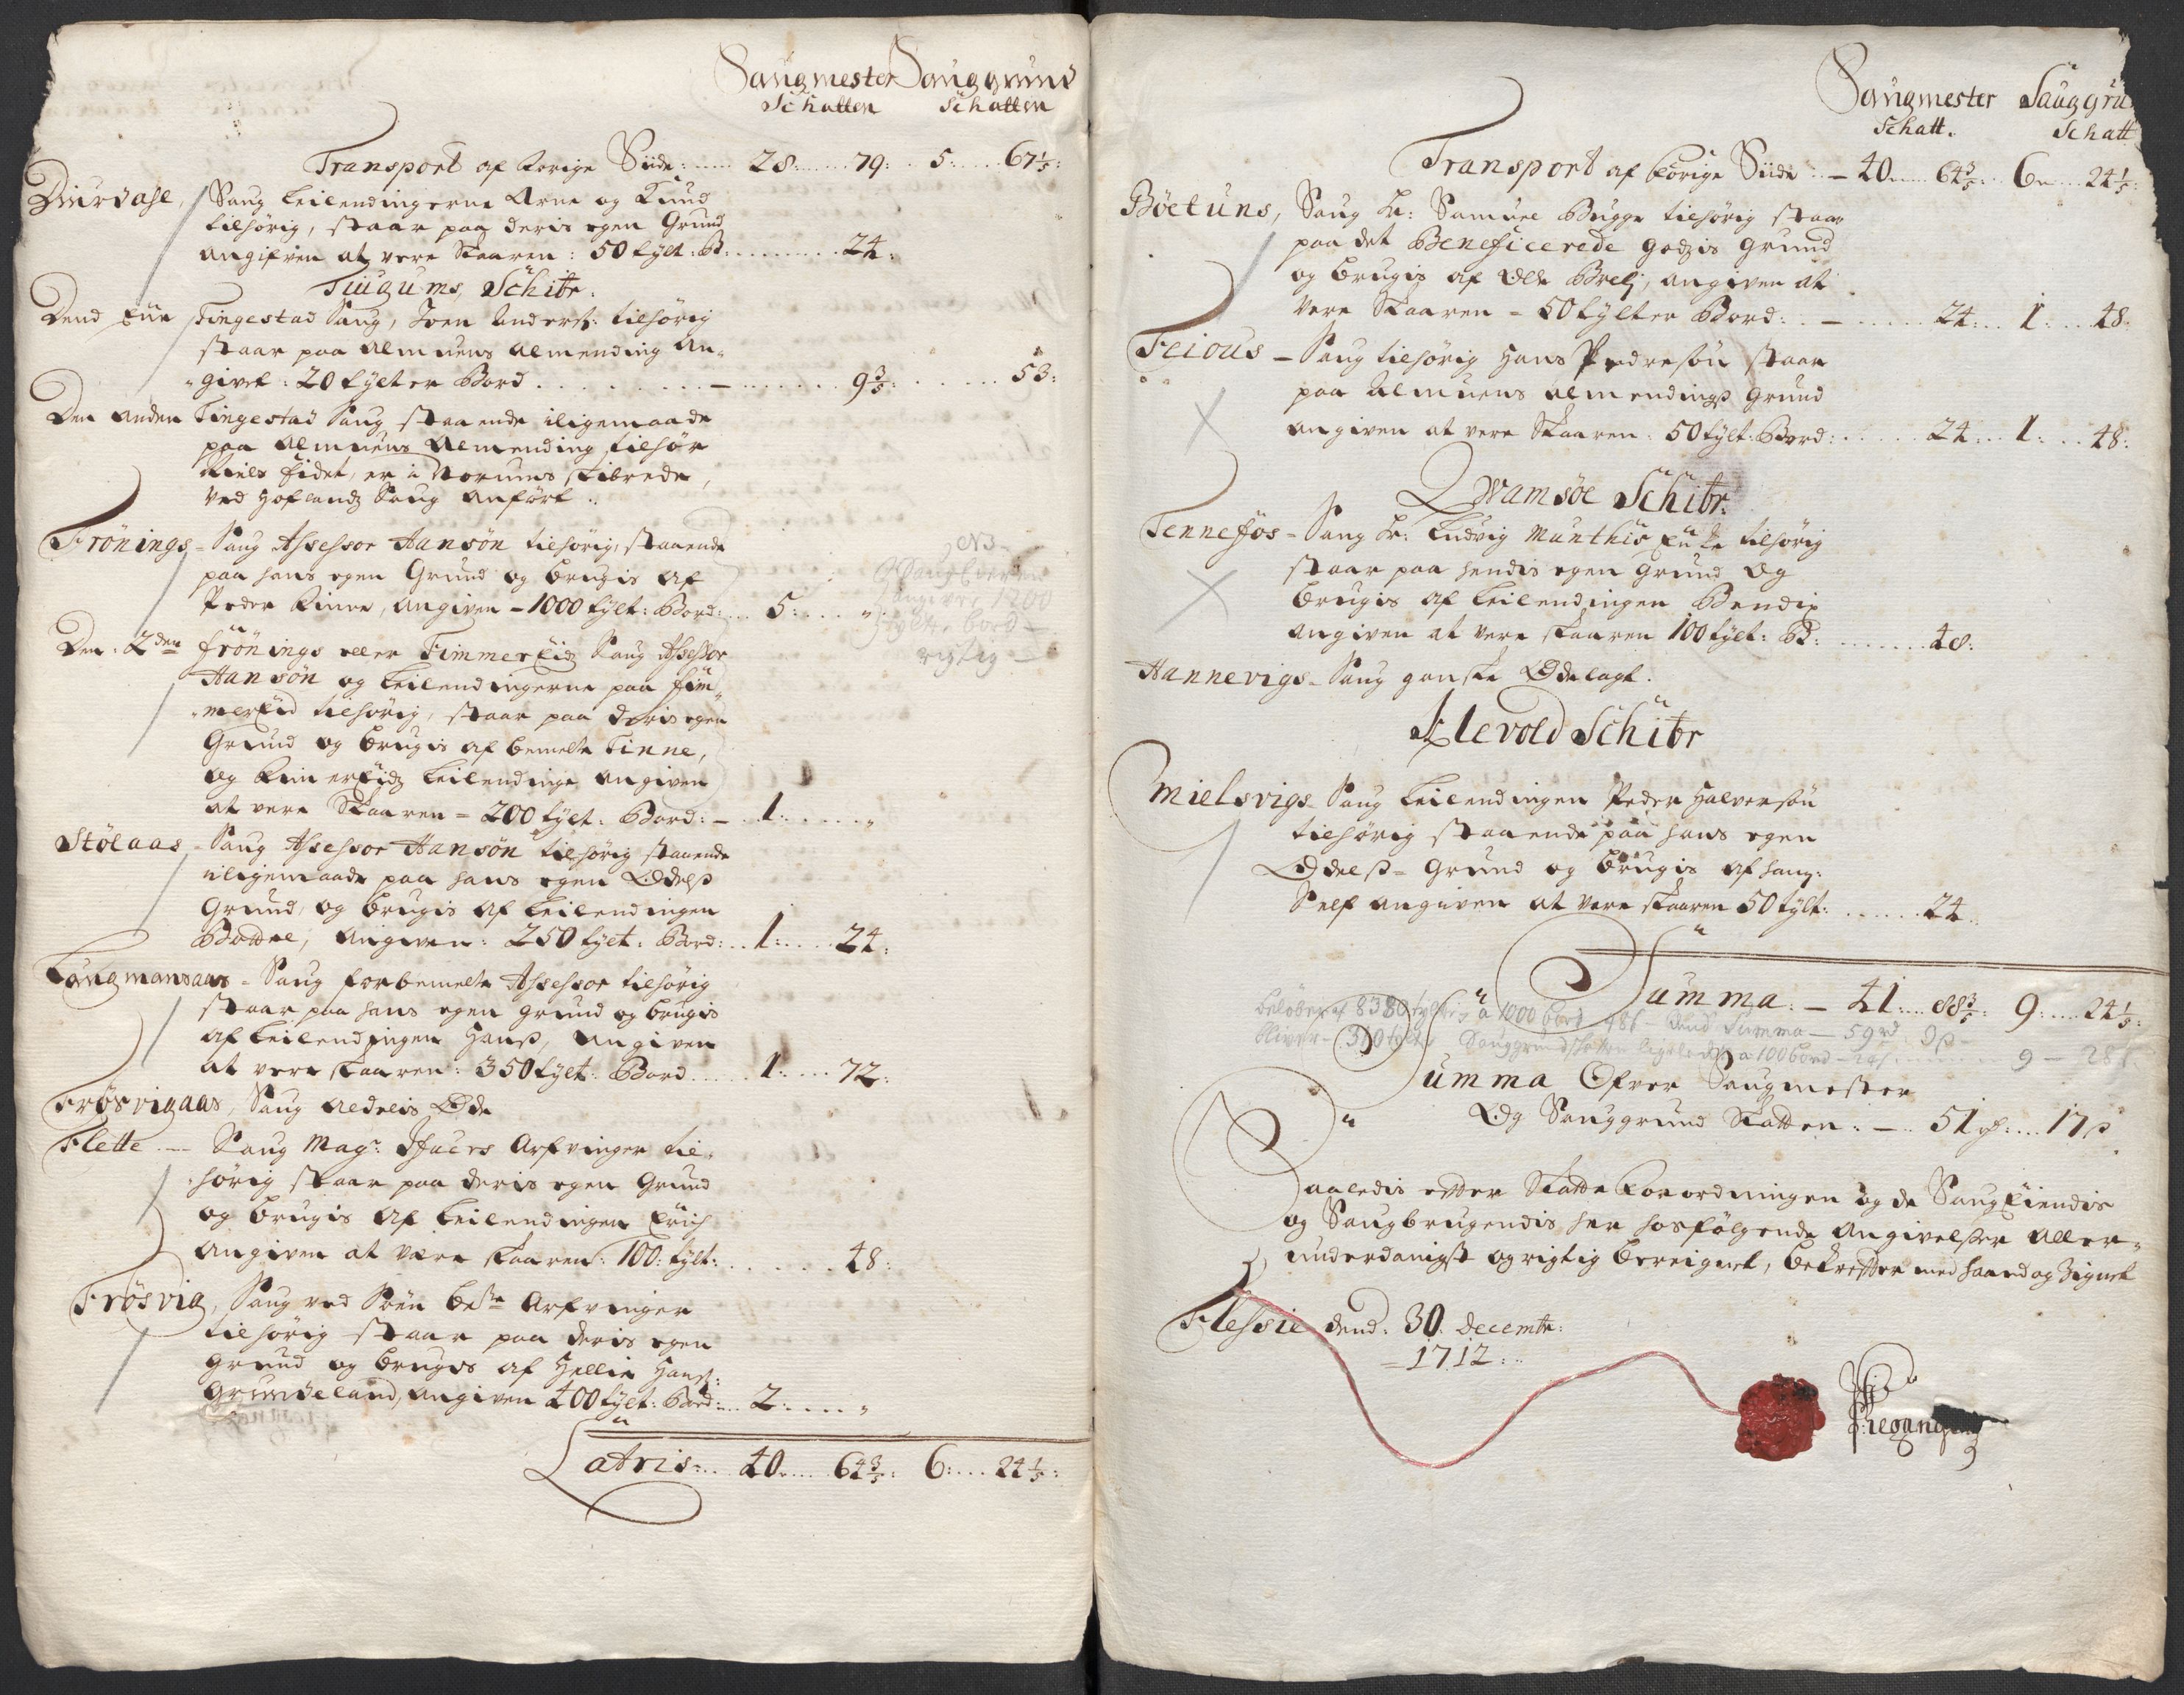 Saugmester Sauggrund
Schatten Schatten
Transport af forige Siide: 28: 79: 5: 67 1/5:
Diurdahl, Saug Leilendingerne Arne og Knud
tilhörig, staar paa deris egen Grund
angifven at vere Skaaren: 50 tylt: B: 24:
Tiugums, Schibr:
Dend Eene Tingestad Saug, Joen Anders: tilhörig
staar paa Almuens Almending An-
givet: 20 tylter Bord 9 3/5: 53:
Den anden Tingestad Saug staaende iligemaade
paa Almuens Almending tilhör
Niels Eidet, er i Norums skibrede,
ved Hoflandz Saug anfört.
Frönings- Saug Assessor Hansön tilhörig, staaende
paa hans egen Grund og brugis af
Peder Finne, angiven - 1000 tylt: Bord: 5: "
NB
Saug Eieren
angivet 1200
tylt. bord
rigtig
Den: 2den Frönings eller Timmer Eidz Saug Assessor
Hansön og Leilendingerne paa Tim-
merEid tilhörig, staar paa deris egen
Grund og brugis af bemelte Finne,
og TimerEidz Leilendinge angiven
at vere Skaaren = 200 tylt. Bord: 1: "
Stölaas - Saug Assessor Hansön tilhörig staaende
iligemaade paa hans egen Odels
Grund, og brugis af Leilendingen
angiven: 250 tylt: Bord: 1: 24:
Langmansaas - Saug forbemelte Assessor tilhörig
staar paa hans egen grund og brugis
af Leilendingen Hans, angiven
at vere skaaren: 350 tylt: Bord 1: 72:
Frösvigaas, Saug aldelis Öde
Flette - Saug Magr: Arfvinger til-
hörig staar paa deris egen Grund
og brugis af Leilendingen Erich
angiven at vere skaaren: 100: tylt: 48:
Frösvig, Saug ved Söen Arfvinger
tilhörig staar paa deris egen
Grund og brugis af Hans:
Grundeland, angiven 400 tylt: Bord: 2: "
Latris: 40: 64 3/5: 6: 24 1/5:
Saugmester Sauggru
Schatt. Schatt
Transport af forige Siide - 40: 64 3/5: 6: 24 1/5:
Böetuns, Saug Hr: Samuel Bugge tilhörig staar
paa det Beneficerede Godzis Grund
og brugis af Ole angiven at
vere Skaaren = 50 tylter Bord: 24: 1: 48:
Feious - Saug tilhörig Hans Pedersön staar
paa Almuens Almendings Grund
angiven at vere Skaaren: 50 tylt: Bord: 24: 1: 48:
Qvamsöe Schibr:
Tennefos - Saug Hr: Ludvig Munthis Enke tilhörig
staar paa hendis egen grund og
brugis af Leilendingen Bendix
angiven at vere skaaren 100 tylt: B: 48:
Hannevigs - Saug ganske Ödelagt.
Klevold Schibr
Mielsvigs Saug Leilendingen Peder Halversön
tilhörig staaende paa hans egen
Odels-Grund og brugis af ham:
Self angiven at vere skaaren 50 tylt: 24
Summa: - 41: 88 3/5: 9: 24 1/5:
belöber af 8380 tylter à 1000 bord 486 - dend Summa - 59 rd
bliver - 310 tylt Sauggrundskatten ligeledes a 100 bord 9 - 28
Summa Ofver Saugmester
Og Sauggrund Skatten: - 51 rd: 17 s
Saaledis efter Skatte Forordningen og de SaugEiendis
og Saugbrugendis her hosfölgende angivelser aller-
underdanigst og rigtig beregnet, bekrefter med haand og Zignet
Flessie dend: 30. decembr:
1712: